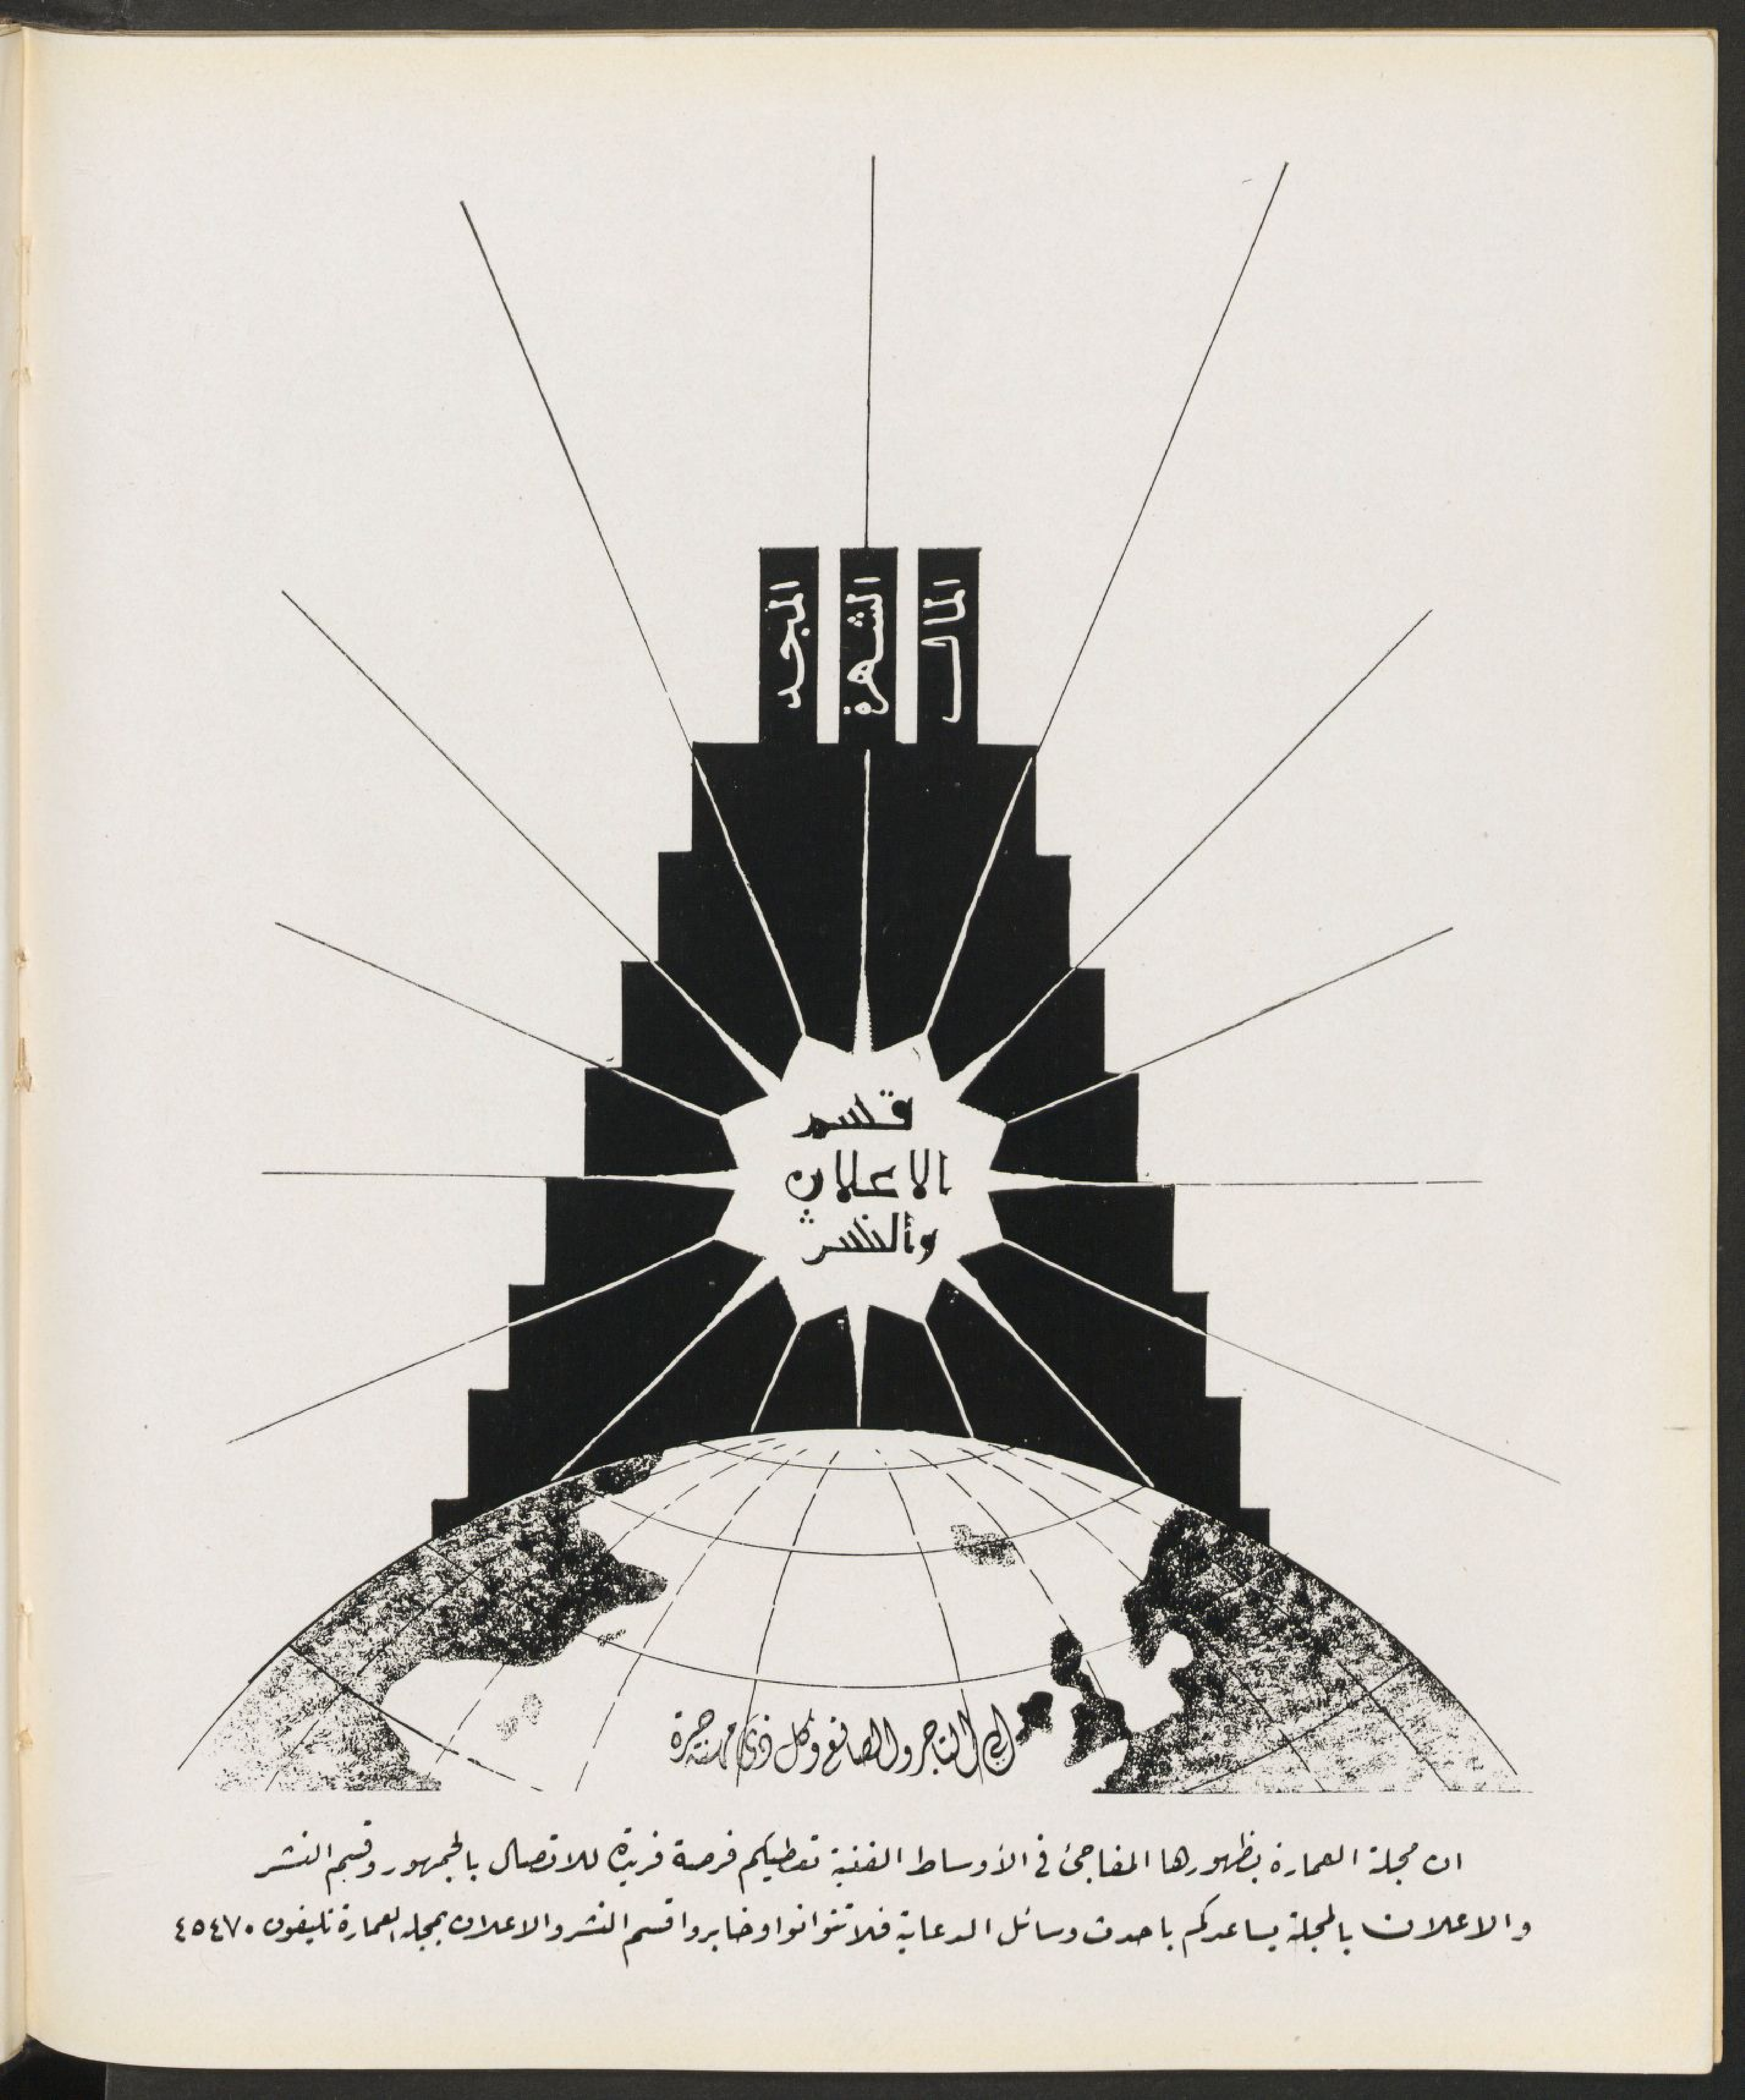 المال
الشهرة
المجد
قسم
الاعلان
والنشر
إلى التاجر والصانع وكل ذى مهنة حرة
ان مجلة العمارة بظهورها المفاجئ فى الأوساط الفنية تعطيكم فرصة فريدة للاتصال بالجمهور وقسم النشر
والاعلان بالمجلة يساعدكم باحدث وسائل الدعاية فلا تتوانوا وخابروا قسم النشر والاعلان بمجلة العمارة تليفون ٤٥٤٧٠